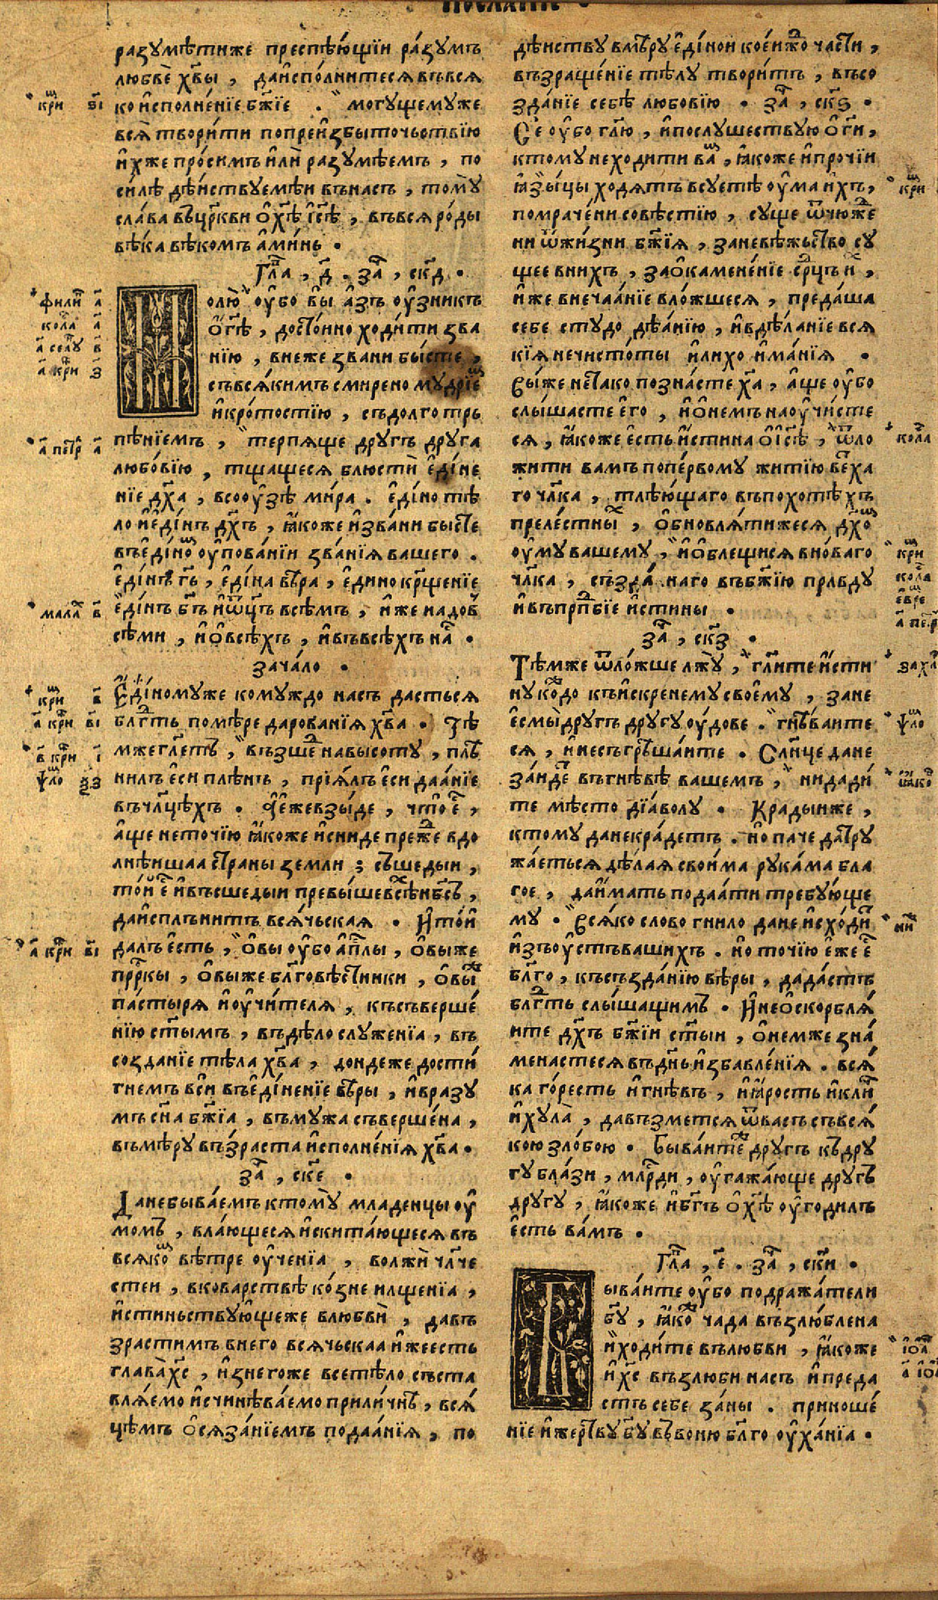 разꙋмѣтиже преспѣю́щїи ра́зꙋмъ
любве̑ хв҃ы , даи҆спо́лнитесѧ въвсѧ
ко и҆сполне́нїе бж҃їе . могꙋщемꙋже
всѧ̀ твори́ти попреи҆збыточьствїю
и҆хже про́симъ и҆лѝ разꙋмѣемъ , по
силѣ дѣ́иствꙋемѣи въ насъ , томꙋ̀
сла́ва въцр҃кви ѻ҆ хс҃ѣ і҆с҃ѣ , въвсѧ ро́ды
вѣ́ка вѣкомъ а҆ми́нь .
Гла҃ , д҃ . за҃ , ск҃д .
Молю̀ ᲂу҆̀бо вы̀ а҆зъ ᲂу҆́зникъ
ѻ҆ г҃ѣ , досто́ино ходи́ти зва
нїю , внеже звани бы́сте ,
съвсѧ́кимъ смирено мꙋ́дрїем
и҆ кро́тостїю , съдолго трь
пѣ́нїемъ , терпѧще дрꙋгъ дрꙋга
любо́вїю , тщащесѧ блюстѝ е҆ди́не
нїе дх҃а , въсоᲂу҆́зѣ ми́ра . е҆ди́но тѣ
ло и҆ е҆ди́нъ дх҃ъ , ꙗ҆́коже и҆зва́ни бысте
въ е҆ди́ном ᲂу҆пова́нїи зва́нїѧ вашего .
е҆ди́нъ г҃ь , е҆ди́на вѣ́ра , е҆дино кр҃щенїе
е҆ди́нъ бг҃ъ и҆ ѻ҆ц҃ъ всѣмъ , и҆же надов
сѣми , и҆ ѻ҆всѣхъ , и҆ въвсѣхъ на́с .
зача́ло .
Е҆ди́номꙋже комꙋждо насъ дастьсѧ
блг҃ть по мѣ́ре дарова́нїѧ хв҃а . Тѣ
мже гл҃етъ , възше́д на высотꙋ , плѣ
нилъ е҆си плѣнъ , прїѧ́лъ е҆си даѧ́нїе
въ чл҃цѣхъ . а҆ е҆же взы́де , что̀ е҆́с ,
а҆ще неточїю ꙗ҆́коже и҆ сниде пре́же вдо
лнѣишаа страны̀ земли ; съшедыи ,
то́и е҆с и҆ възшедыи превы́ше всѣ́х нб҃съ ,
да и҆сплъни́тъ всѧ́чьскаѧ . И҆ то́и
далъ е҆сть , ѻ҆вы ᲂу҆́бо а҆пл҃ы , ѻ҆выже
прр҃кы , ѻ҆выже блг҃овѣстники , ѻ҆вы́же
пастырѧ и҆ ᲂу҆чи́телѧ , късъверше́
нїю ст҃ымъ , въдѣ́ло слꙋженїа , въ
созданїе тѣ́ла хв҃а , дондеже дости́
гнемъ вси въ е҆ди́ненїе вѣ́ры , и҆ вразꙋ
мъ сн҃а бж҃їа , въ мꙋжа съверше́на ,
въ мѣ́рꙋ въз́раста и҆сполне́нїѧ хв҃а .
за҃ , ск҃е .
Да небыва́емъ ктомꙋ̀ младенцы ᲂу҆
момъ , влаю́щесѧ и҆ скита́ющесѧ въ
всѧ́ком вѣ́тре ᲂу҆че́нїа , волжѝ чл҃че
стеи , вковарствѣ ко́зне илще́нїа ,
и҆стиньствꙋю́щеже влюбвѝ , давъ
зрастимъ внего всѧ́чьскаа и҆же есть
глава̀ хс҃ , и҆знегоже все тѣло съста
влѧ́емо и҆ счинѣва́емо прили́чнѣ , всѧ́
цѣмъ ѻ҆сѧза́нїемъ подаѧ́нїѧ , по
дѣ́иствꙋ вмѣ́рꙋ е҆ди́нои кое́иждо ча́сти ,
възраще́нїе тѣ́лꙋ твори́тъ , въсо
зда́нїе себѣ̀ любовїю . за҃ , ск҃ѕ .
Се ᲂу҆́бо гл҃ю , и҆ послꙋшествꙋю ѻ҆ г҃и ,
ктомꙋ не ходити ва́м , ꙗ҆́коже и҆ про́чїи
ꙗ҆зы́цы ходѧтъ всꙋетѣ ᲂу҆ма и҆хъ ,
помраче́ни совѣстїю , сꙋще ѿчюже
ни ѿ жи́зни бж҃їѧ , заневѣ́жьство сꙋ
щее вни́хъ , заѻ҆камене́нїе ср҃ць и҆х ,
и҆же внечаа́нїе вло́жшесѧ , преда́ша
себе стꙋдо дѣѧ́нїю , и҆ вдѣланїе всѧ
кїѧ нечисто́ты и҆ лихо и҆ма́нїѧ .
Вы́же не та́ко позна́сте ха҃ , а҆ще ᲂу҆́бо
слы́шасте є҆го , и҆ ѻ҆ не́мъ наᲂу҆чи́сте
сѧ , ꙗ҆́коже е҆сть и҆́стина ѻ҆ і҆с҃ѣ , ѿло
жити вамъ попе́рвомꙋ житїю ветха
го чл҃ка , тлѣю́щаго въ похотѣхъ
преле́стных , ѻ҆бновлѧ́тижесѧ дх҃ом
ᲂу҆мꙋ вашемꙋ , и҆ ѻ҆блещисѧ в но́ваго
чл҃ка , създа́ннаго въ бж҃їю пра́вдꙋ
и҆ въ прп҃бїе и҆́стины .
за҃ , ск҃з .
Тѣ́мже ѿло́жше лжꙋ̀ , гл҃ите и҆сти
нꙋ ко́ждо къ и҆скренемꙋ своемꙋ , зане
е҆смы̀ дрꙋгъ дрꙋгꙋ ᲂу҆́дове . гнѣ́ваите
сѧ , и҆ несъгрѣша́ите . Сл҃нце дане
за́идет въ гнѣ́вѣ вашемъ , ни дади́
те мѣ́сто дїа́волꙋ . Крадыиже ,
ктомꙋ да некра́детъ . но паче да трꙋ
жа́етьсѧ дѣ́лаѧ свои́ма рꙋка́ма бла
гое , да и҆́мать подаа́ти требꙋю́ще
мꙋ . всѧко слово гнило дане и҆схо́дит
и҆зъ ᲂу҆́стъ вашихъ . но точїю е҆же е҆с
бл҃го , къ създа́нїю вѣры , да да́стъ
блг҃ть слы́шащимъ . И҆ не ѻ҆скорблѧ́
ите дх҃ъ бж҃їи ст҃ыи , ѻ҆ немже зна́
менастесѧ въ дн҃ь и҆збавле́нїѧ . всѧ́
ка го́ресть и҆ гнѣ́въ , и҆ ꙗ҆́рость и҆ кли́ч
и҆ хꙋла̀ , да възметсѧ ѿ васъ съ всѧ́
кою зло́бою . Быва́ите́же дрꙋгъ къ дрꙋ
гꙋ бла́зи , млр҃ди , ᲂу҆гажа́юще дрꙋгъ
дрꙋгꙋ , ꙗ҆́коже и҆ бг҃ъ ѻ҆ хс҃ѣ ᲂу҆годилъ
е҆́сть ва́мъ .
Гла҃ , е҃ . за҃ , ск҃и .
Быва́ите ᲂу҆́бо подража́тели
бг҃ꙋ , ꙗ҆́коже чада възлюблена
и҆ ходи́те въ любви , ꙗ҆́коже
и҆ хс҃ възлюби насъ и҆ преда
стъ себе за́ ны . приноше́
нїе и҆ же́ртвꙋ бг҃ꙋ въ воню бл҃го ᲂу҆ха́нїа .